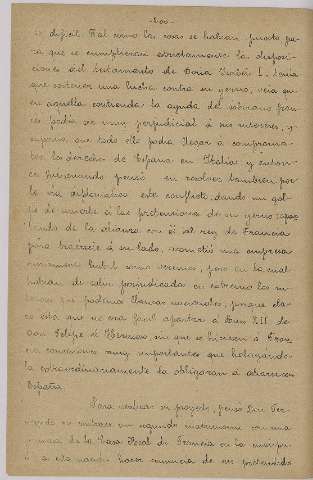 -200-
es difícil. Tal como las cosas se habían puesto pa-
ra que se cumplieran estrictamente las disposi-
ciones del testamento de Doña Isabel I, tenía
que sostener una lucha contra su yerno, veía que
en aquella contienda la ayuda del soberano fran-
cés podía ser muy perjudicial á sus intereses, y
suponía que todo ello podía llegar á comprome-
ter los derechos de España en Italia; y entonces
Fernando pensó en resolver también por
la vía diplomática este conflicto, dando un gol-
pe de muerte á las pretensiones de su yerno
de la alianza con él al rey de Francia
para traerle á su lado. acometió una empresa
hábil como veremos, pero en la cual
habían de salir perjudicados en extremo los in-
tereses que podemos llamar nacionales, porque cla-
ro está que no era fácil apartar á Luis XII de
Don Felipe el Hermoso sin que se hicieran á Fran-
cia concesiones muy importantes que halagando-
la extraordinariamente la obligaran á
España.
Para realizar su proyecto, pensó Don Fer-
nando en contraer un segundo matrimonio con una
de la Casa Real de Francia en la
á ella hacer renuncia de sus pretendidos